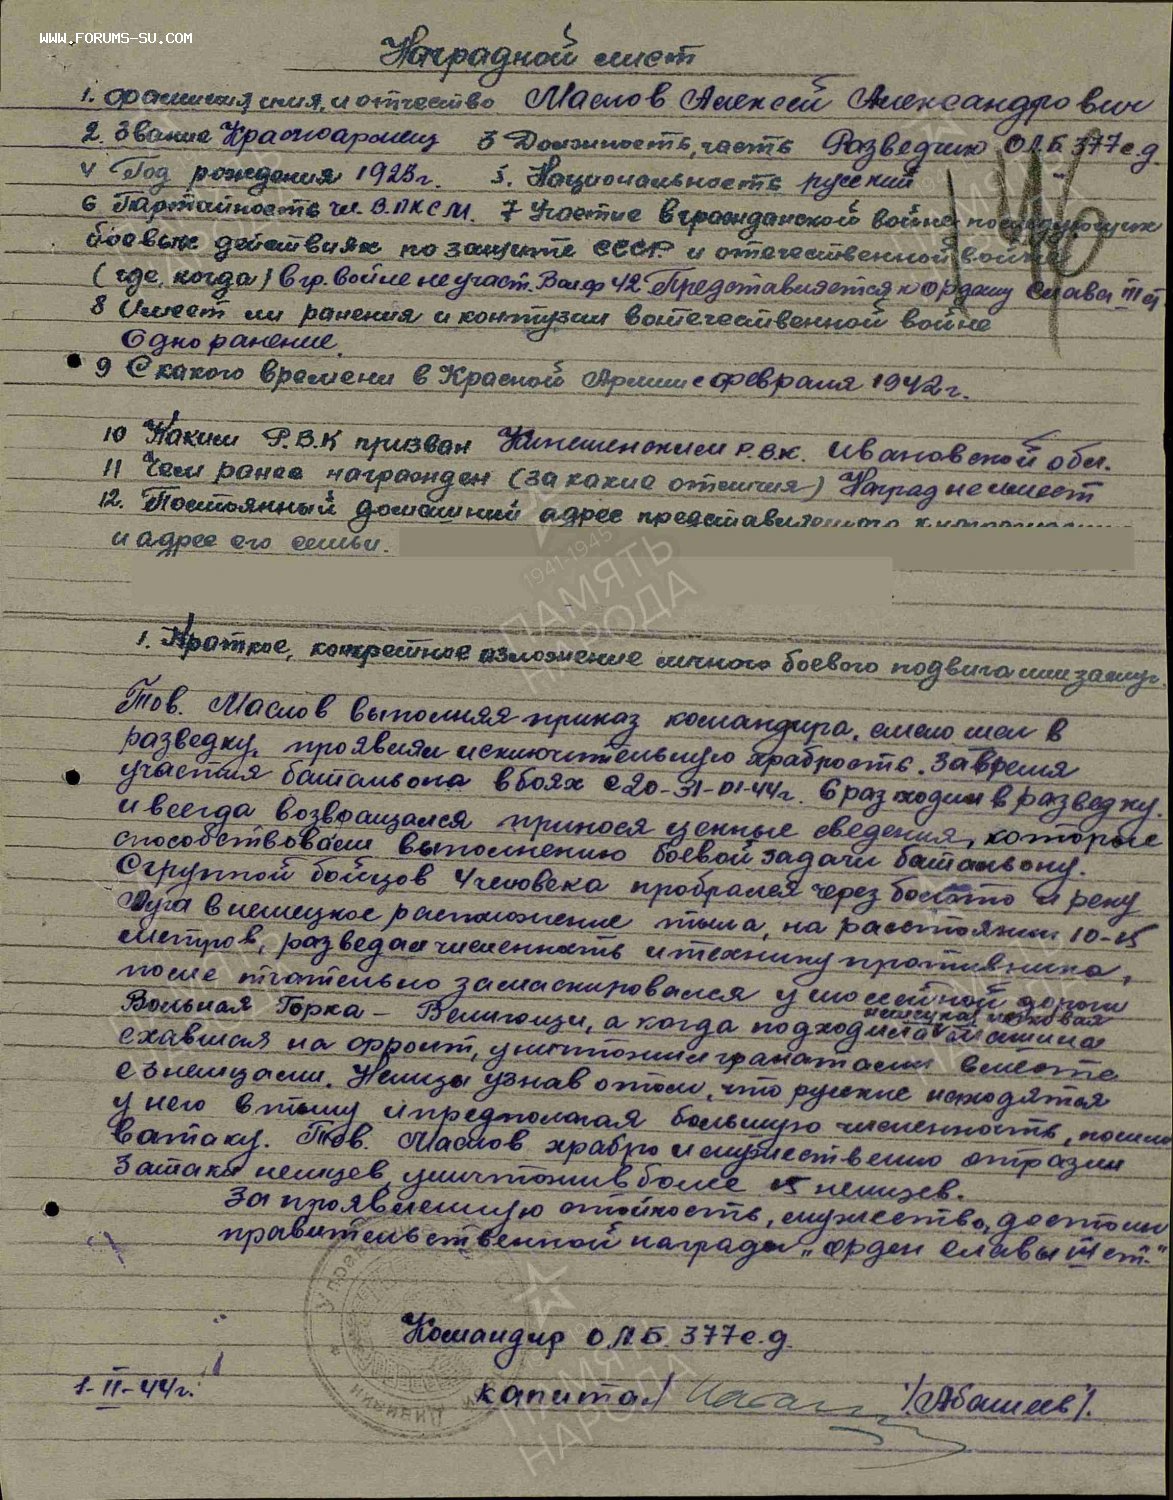 WWW.FORUMS-SU.COM
Наградной лист
1. Фамилия имя, и отчество Маслов Алексей Александрович
2. Звание Красноармеец 3 Должность, часть Разведчик О.Л.Б 377 с.д.
4 Год рождения 1923г. 5. Национальность русский
6 Партайность чл. В.ЛКСМ. 7 Участие в гражданской войне последующих
боевых действиях по защите СССР и отечественной войне
(где, когда) в гр. войне не участ. Вол.ф 42 Представляется к ордену Слава III ст
8 Имеет ли ранения и контузии в отечественной войне
Одно ранение.
9 С какого времени в Красной Армии с февраля 1942г.
10 Каким Р.В.К призван Кинешемским Р.В.К. Ивановской обл.
11 Чем ранее награжден (за какие отличия) Наград не имеет
12. Постоянный домашний адрес представляемого к награждению
и адрес его семьи.
1941-1945
ПАМЯТЬ
НАРОДА
1. Краткое, конкретное изложение личного боевого подвига или заслуг.
Тов. Маслов выполняя приказ командира, смело шел в
разведку, проявляя исключительную храбрость. За время
участия батальона в боях с 20-31-01-44г. 6 раз ходил в разведку.
и всегда возвращался принося ценные сведения, которые
способствовали выполнению боевой задачи батальону.
С группой бойцов 4 человека пробрался через болото и реку
Луга в немецкое расположение тыла, на расстоянии 10-15
метров, разведал численность и технику противника,
после тщательно замаскировался у шоссейной дороги
Вольная Горка - Велигощи, а когда подходила немецкая легковая машина
ехавшая на фронт, уничтожил гранатами вместе
с 3 немцами. Немцы узнав о том, что русские находятся
у него в тылу и предполагая большую численность, пошли
в атаку. Тов. Маслов храбро и мужественно отразил
3 атаки немцев, уничтожив более 15 немцев.
За проявленную стойкость, мужество, достоин
правительственной награды „орден Славы III ст."
Командир О.Л.Б. 377 с.д.
1-II-44г. капитан /Абашеев/.